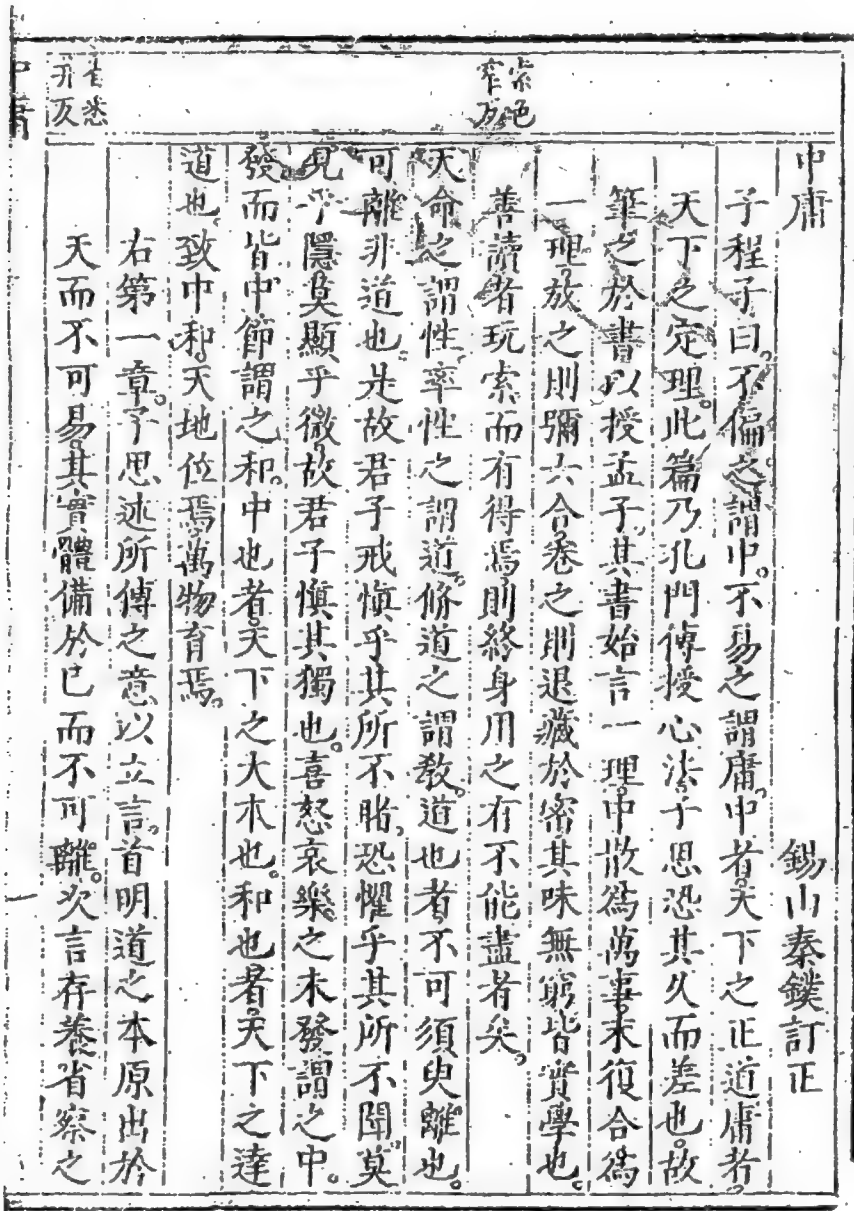 中庸
錫山秦鏷訂正
子程子曰。不偏之謂中。不易之謂庸。中者。天下之正道。庸者。
天下之定理。此篇乃孔門傳授心法。子思恐其久而差也。故
筆之於書以授孟子。其書始言一理。中散爲萬事。末復合爲
一理。放之則彌六合。卷之則退藏於密。其味無窮。皆實學也。
善讀者玩索而有得焉。則終身用之有不能盡者矣。
天命之謂性。率性之謂道。脩道之謂敎。道也者。不可須臾離也。
可離非道也。是故君子戒慎乎其所不睹。恐懼乎其所不聞。莫
見乎隱。莫顯乎微。故君子慎其獨也。喜怒哀樂之未發謂之中。
發而皆中節謂之和。中也者。天下之大本也。和也者。天下之達
道也。致中和。天地位焉。萬物育焉。
右第一章。子思述所傳之意以立言。首明道之本原出於
天而不可易。其實體備於已而不可離。次言存養省察之
索色
窄反
省悉
井反
中庸